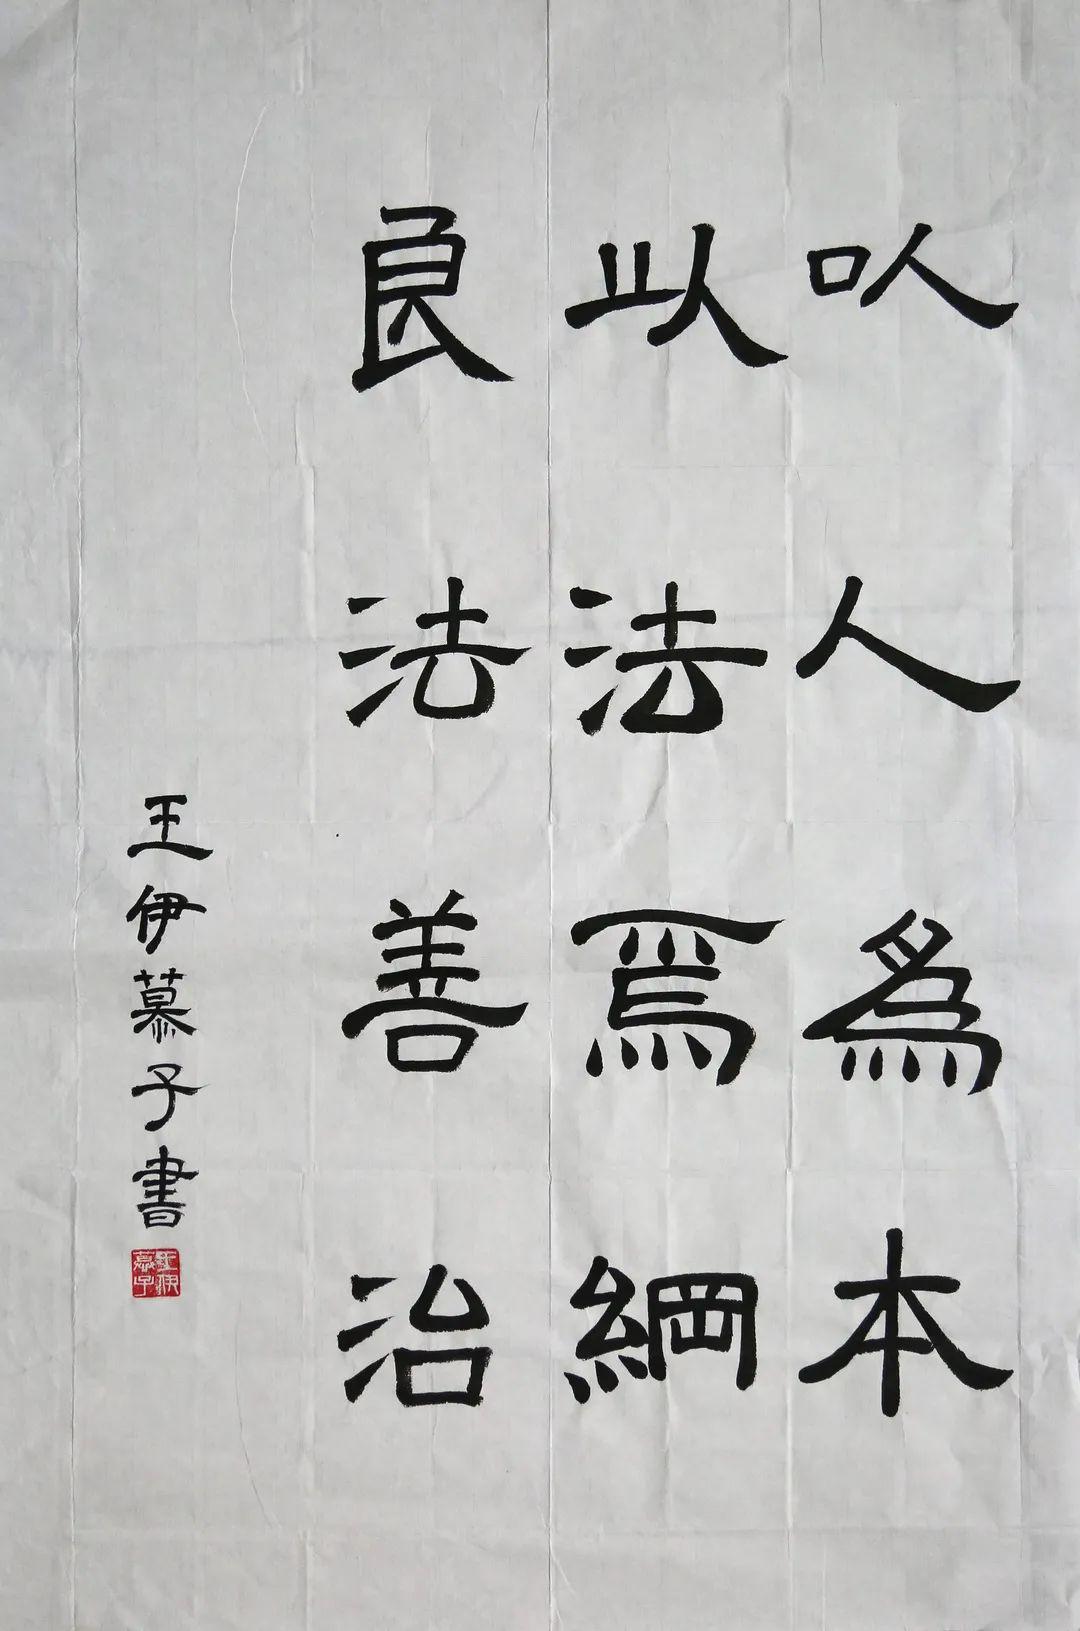 以人爲本
以法爲綱
良法善治
王伊慕子書
王伊慕子